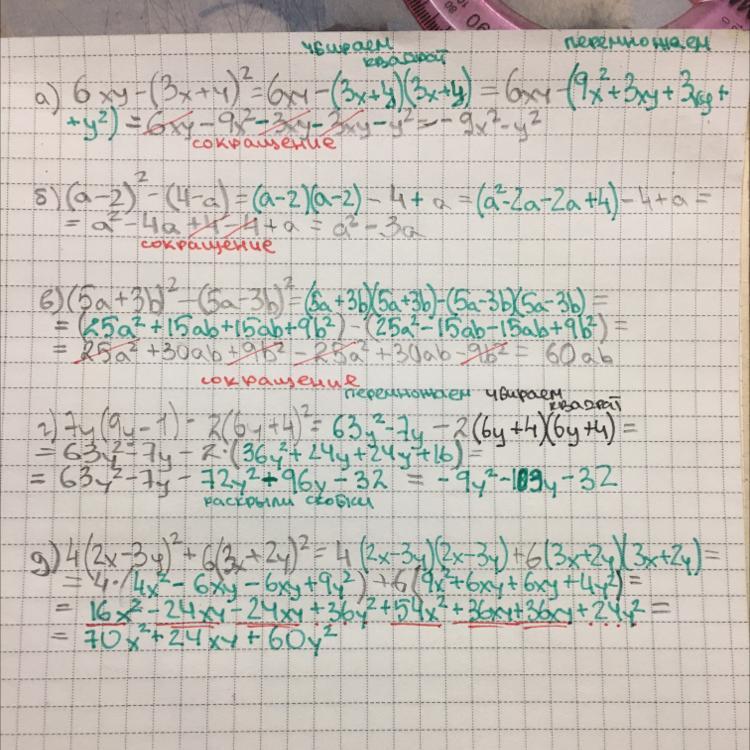 убираем перемножаем
квадрат
а) 6xy-(3x+y)² = 6xy-(3x+y)(3x+y) = 6xy-(9x²+3xy+3xy+
+y²) = 6xy-9x²-3xy-3xy-y² = -9x²-y²
сокращение
б) (a-2)²-(4-a) = (a-2)(a-2)-4+a = (a²-2a-2a+4)-4+a =
= a²-4a+4-4+a = a²-3a
сокращение
в) (5a+3b)²-(5a-3b)² = (5a+3b)(5a+3b)-(5a-3b)(5a-3b) =
= (25a²+15ab+15ab+9b²)-(25a²-15ab-15ab+9b²) =
= 25a²+30ab+9b²-25a²+30ab-9b² = 60ab
сокращение
перемножаем убираем
квадрат
г) 7y(9y-1)-2(6y+4)² = 63y²-7y-2(6y+4)(6y+4) =
= 63y²-7y-2·(36y²+24y+24y+16) =
= 63y²-7y-72y²-96y-32 = -9y²-103y-32
раскрыли скобки
д) 4(2x-3y)²+6(3x+2y)² = 4(2x-3y)(2x-3y)+6(3x+2y)(3x+2y) =
= 4·(4x²-6xy-6xy+9y²)+6(9x²+6xy+6xy+4y²) =
= 16x²-24xy-24xy+36y²+54x²+36xy+36xy+24y² =
= 70x²+24xy+60y²